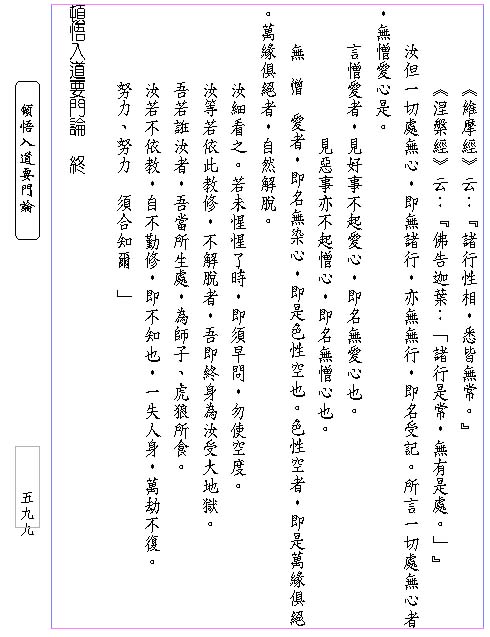 《維摩經》云：『諸行性相，悉皆無常。』
《涅槃經》云：『佛告迦葉：「諸行是常，無有是處。」』
汝但一切處無心，即無諸行，亦無無行，即名受記。所言一切處無心者
，無憎愛心是。
言憎愛者，見好事不起愛心，即名無愛心也。
見惡事亦不起憎心，即名無憎心也。
無 憎 愛者，即名無染心，即是色性空也。色性空者，即是萬緣俱絕
。萬緣俱絕者，自然解脫。
汝細看之。若未惺惺了時，即須早問，勿使空度。
汝等若依此教修，不解脫者，吾即終身為汝受大地獄。
吾若誑汝者，吾當所生處，為師子、虎狼所食。
汝若不依教，自不勤修，即不知也，一失人身，萬劫不復。
努力、努力 須合知爾 」
頓悟入道要門論 終
頓悟入道要門論
五九九